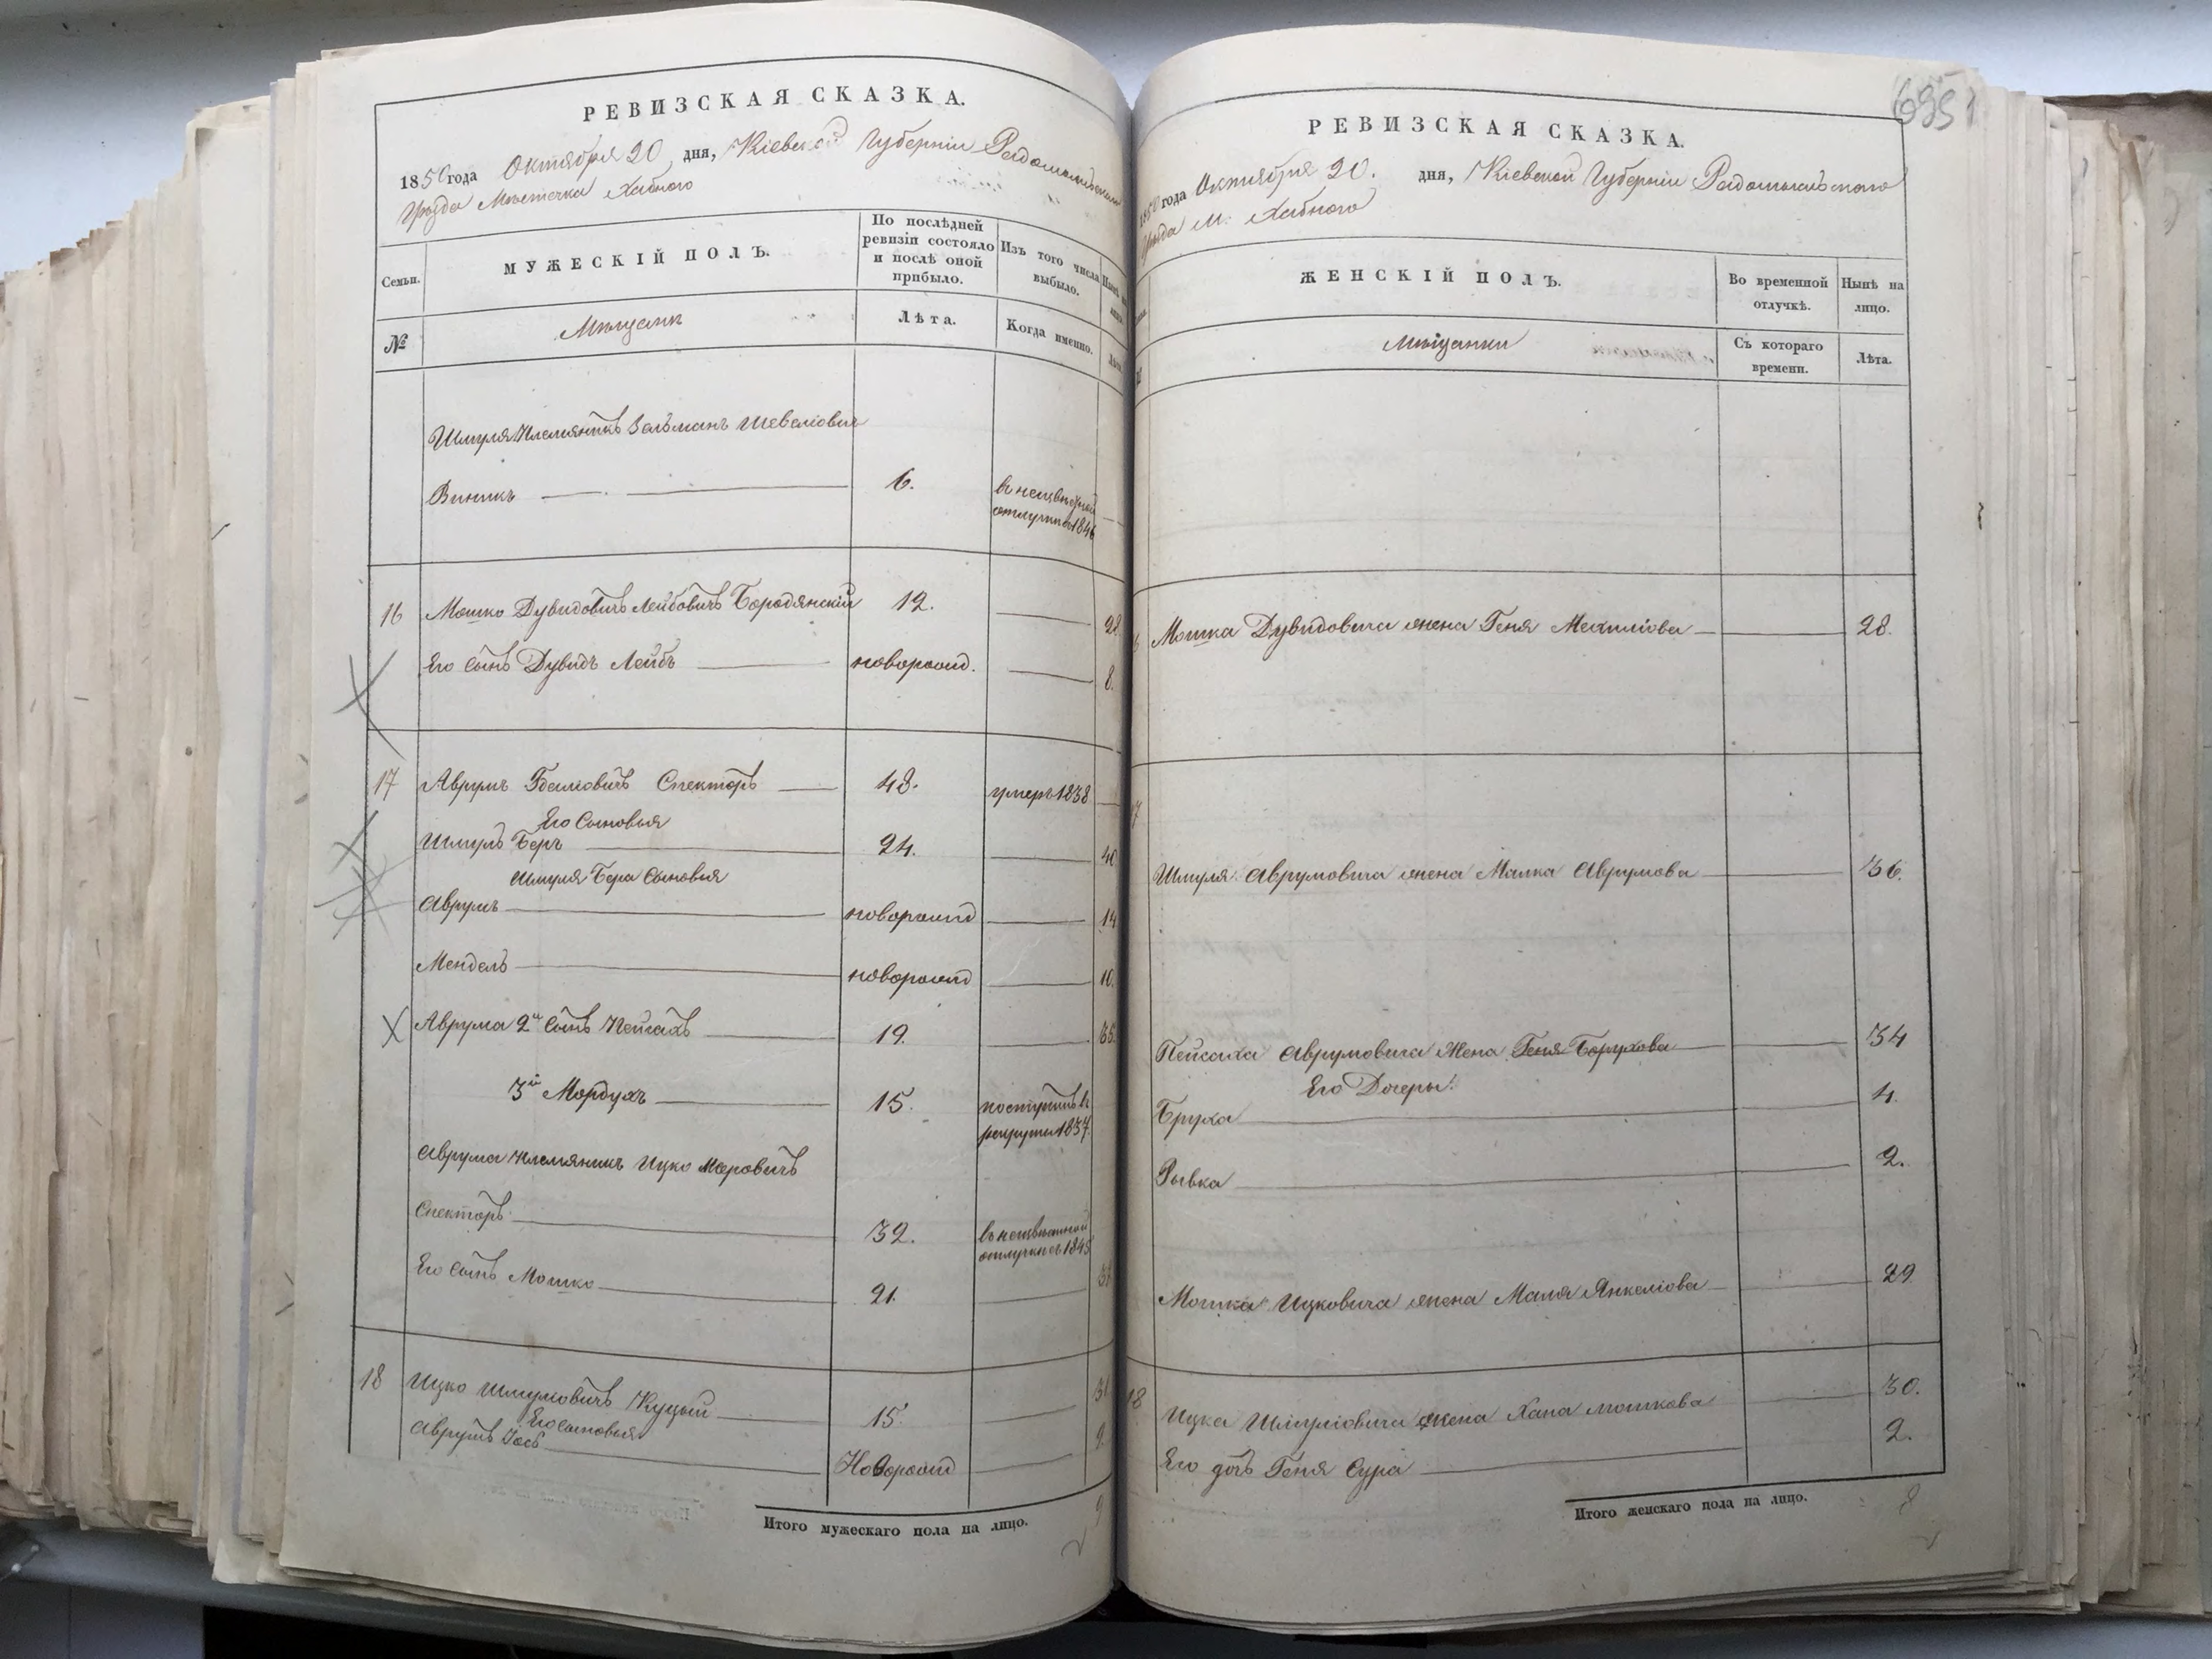 РЕВИЗСКАЯ СКАЗКА.
1850 года Октября 20 дня, Кіевской Губерніи Радомысльскаго
Уѣзда Мѣстечка Хабного
Семьи.
МУЖЕСКІЙ ПОЛЪ.
По послѣдней ревизіи состояло и послѣ оной прибыло.
Изъ того числа выбыло.
Нынѣ на лицо.
№
Мѣщане
Лѣта.
Когда именно.
Лѣта.
Шмуля племянникъ Зельманъ Шевелiовичъ
Виникъ 6. въ неизвѣстной
отлучкѣ 1846
16 Мошко Дувидовичъ Лейбовичъ Бородянскій 12. 28.
Его сынъ Дувидъ Лейбъ новорожд. 8.
17 Аврумъ Спекторъ 48. умеръ 1838
Его Сыновья
Шмуль Беръ 24. 40
Шмуля Бера Сыновья
Аврумъ новорожд 14
Мендель новорожд 10.
Аврума 2й Сынъ Пейсахъ 19. 35
3й Мордухъ 15. поступилъ въ
рекруты 1837.
Аврума племянникъ Ицко Меровичъ
Спекторъ 32. въ неизвѣстной
отлучкѣ съ 1845
Его сынъ Мошко 21.
18 Ицко Шмулiовичъ Куцый 15. 31
Его сыновья
Аврумъ Іосъ Новорожд 9.
Итого мужескаго пола на лицо. 9
РЕВИЗСКАЯ СКАЗКА.
695
1850 года Октября 20. дня, Кіевской Губерніи Радомысльскаго
Уѣзда М: Хабного
ЖЕНСКІЙ ПОЛЪ.
Во временной отлучкѣ.
Нынѣ на лицо.
Мѣщанки
Съ котораго времени.
Лѣта.
Мошка Дувидовича жена Геня Мехилiова 28.
7
Шмуля Аврумовича жена Малка Аврумова 36.
Пейсаха Аврумовича Жена Геня Борухова 34
Его Дочеры:
Бруха 4.
Рывка 2.
Мошка Ицковича жена Маля Янкелiова 29
18 Ицка Шмулiовича жена Хана Мошкова 30.
Его дочь Геня Сура 2.
Итого женскаго пола на лицо. 8